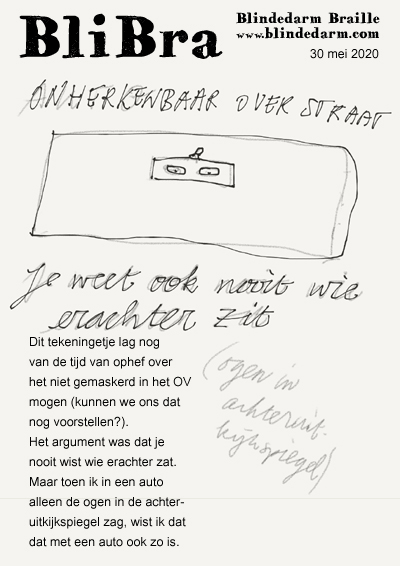 BliBra
Blindedarm Braille
www.blindedarm.com
30 mei 2020
ONHERKENBAAR OVER STRAAT
Je weet ook nooit wie
erachter zit
Dit tekeningetje lag nog
van de tijd van ophef over
het niet gemaskerd in het OV
mogen (kunnen we ons dat
nog voorstellen?).
Het argument was dat je
nooit wist wie erachter zat.
Maar toen ik in een auto
alleen de ogen in de achter-
uitkijkspiegel zag, wist ik dat
dat met een auto ook zo is.
(ogen in
achteruit-
kijkspiegel)